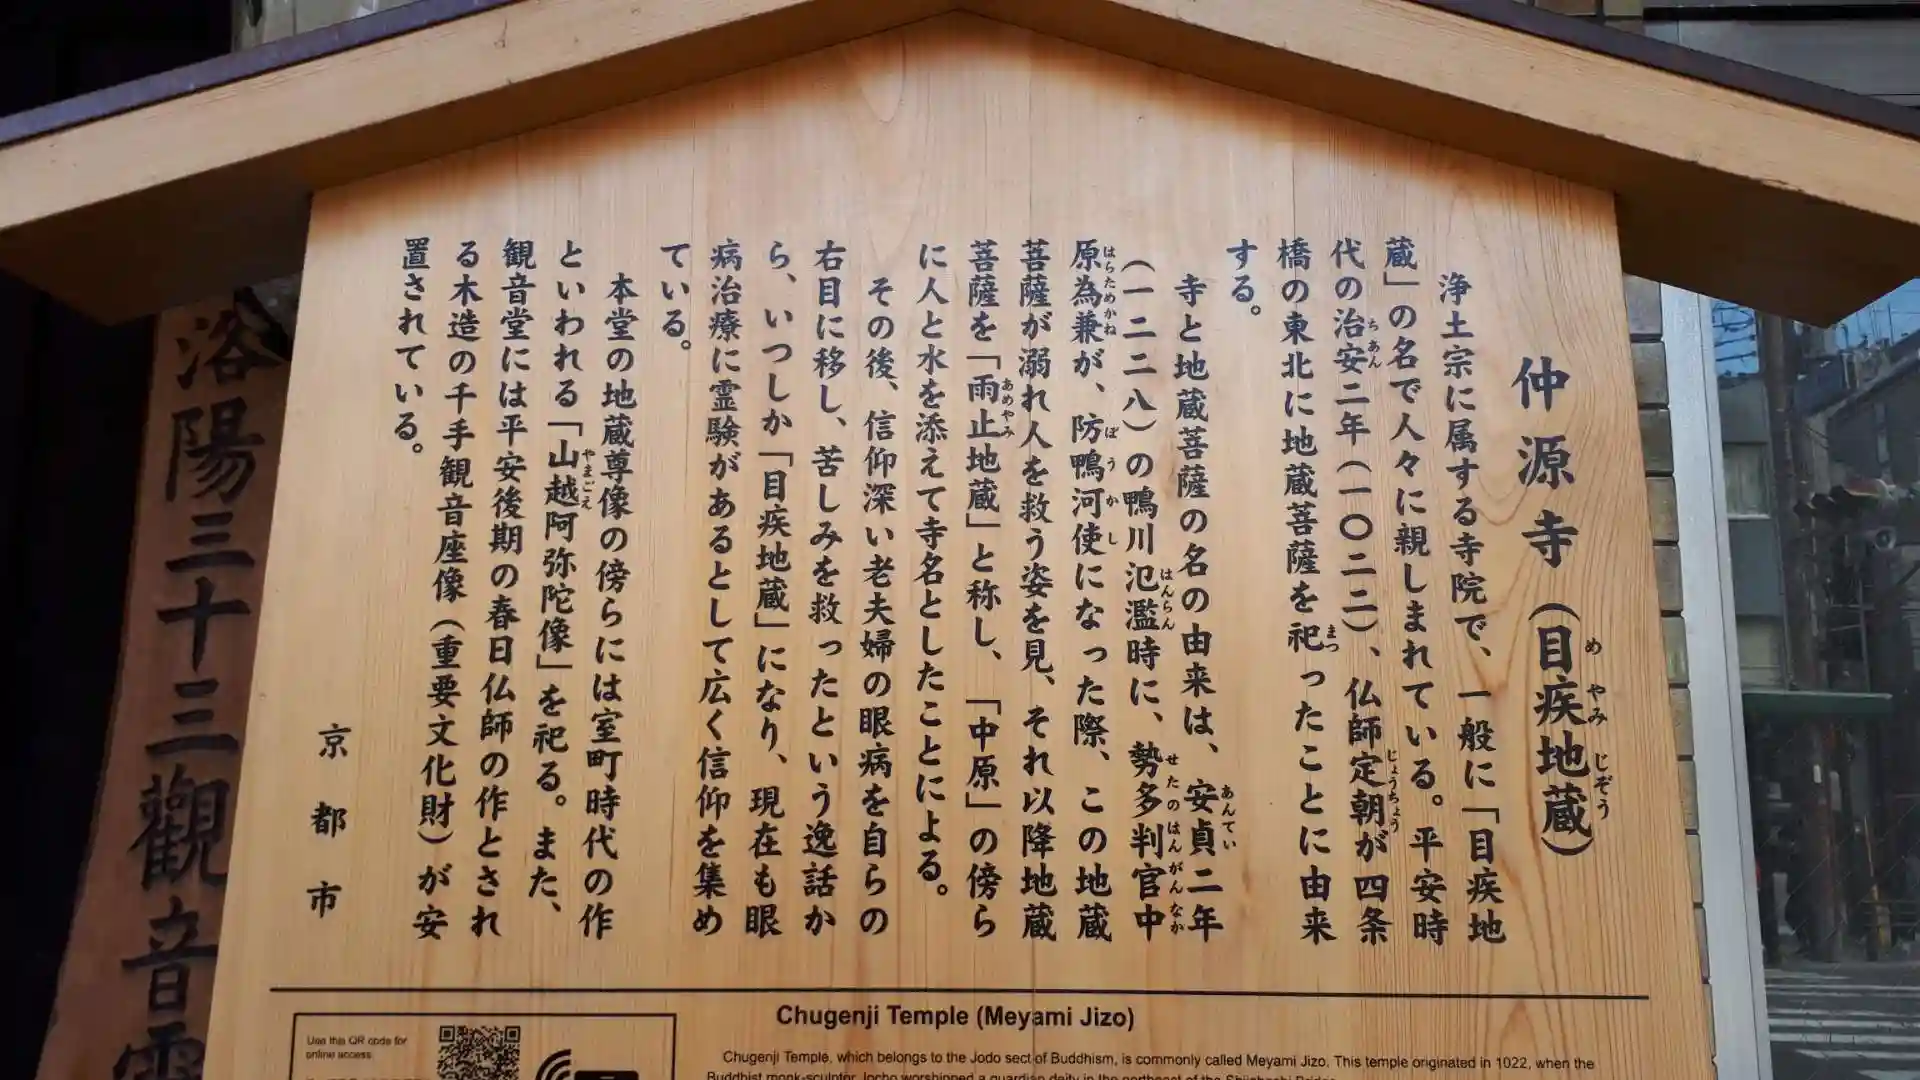 仲源寺（目疾地蔵）
めやみじぞう
浄土宗に属する寺院で、一般に「目疾地
蔵」の名で人々に親しまれている。平安時
代の治安二年（一〇二二）、仏師定朝が四条
ちあん
じょうちょう
橋の東北に地蔵菩薩を祀ったことに由来
まつ
する。
寺と地蔵菩薩の名の由来は、安貞二年
あんてい
（一二二八）の鴨川氾濫時に、勢多判官中
はんらん
せたのはんがんなか
原為兼が、防鴨河使になった際、この地蔵
はらためかね
ぼうかし
菩薩が溺れ人を救う姿を見、それ以降地蔵
菩薩を「雨止地蔵」と称し、「中原」の傍ら
あめやみ
に人と水を添えて寺名としたことによる。
その後、信仰深い老夫婦の眼病を自らの
右目に移し、苦しみを救ったという逸話か
ら、いつしか「目疾地蔵」になり、現在も眼
病治療に霊験があるとして広く信仰を集め
ている。
本堂の地蔵尊像の傍らには室町時代の作
といわれる「山越阿弥陀像」を祀る。また、
やまごえ
観音堂には平安後期の春日仏師の作とされ
る木造の千手観音座像（重要文化財）が安
置されている。
京都市
洛陽三十三觀音霊
Chugenji Temple (Meyami Jizo)
Use this QR code for
online access.
Chugenji Temple, which belongs to the Jodo sect of Buddhism, is commonly called Meyami Jizo. This temple originated in 1022, when the
Buddhist monk-sculptor Jocho worshipped a guardian deity in the northeast of the Shijobashi Bridge.